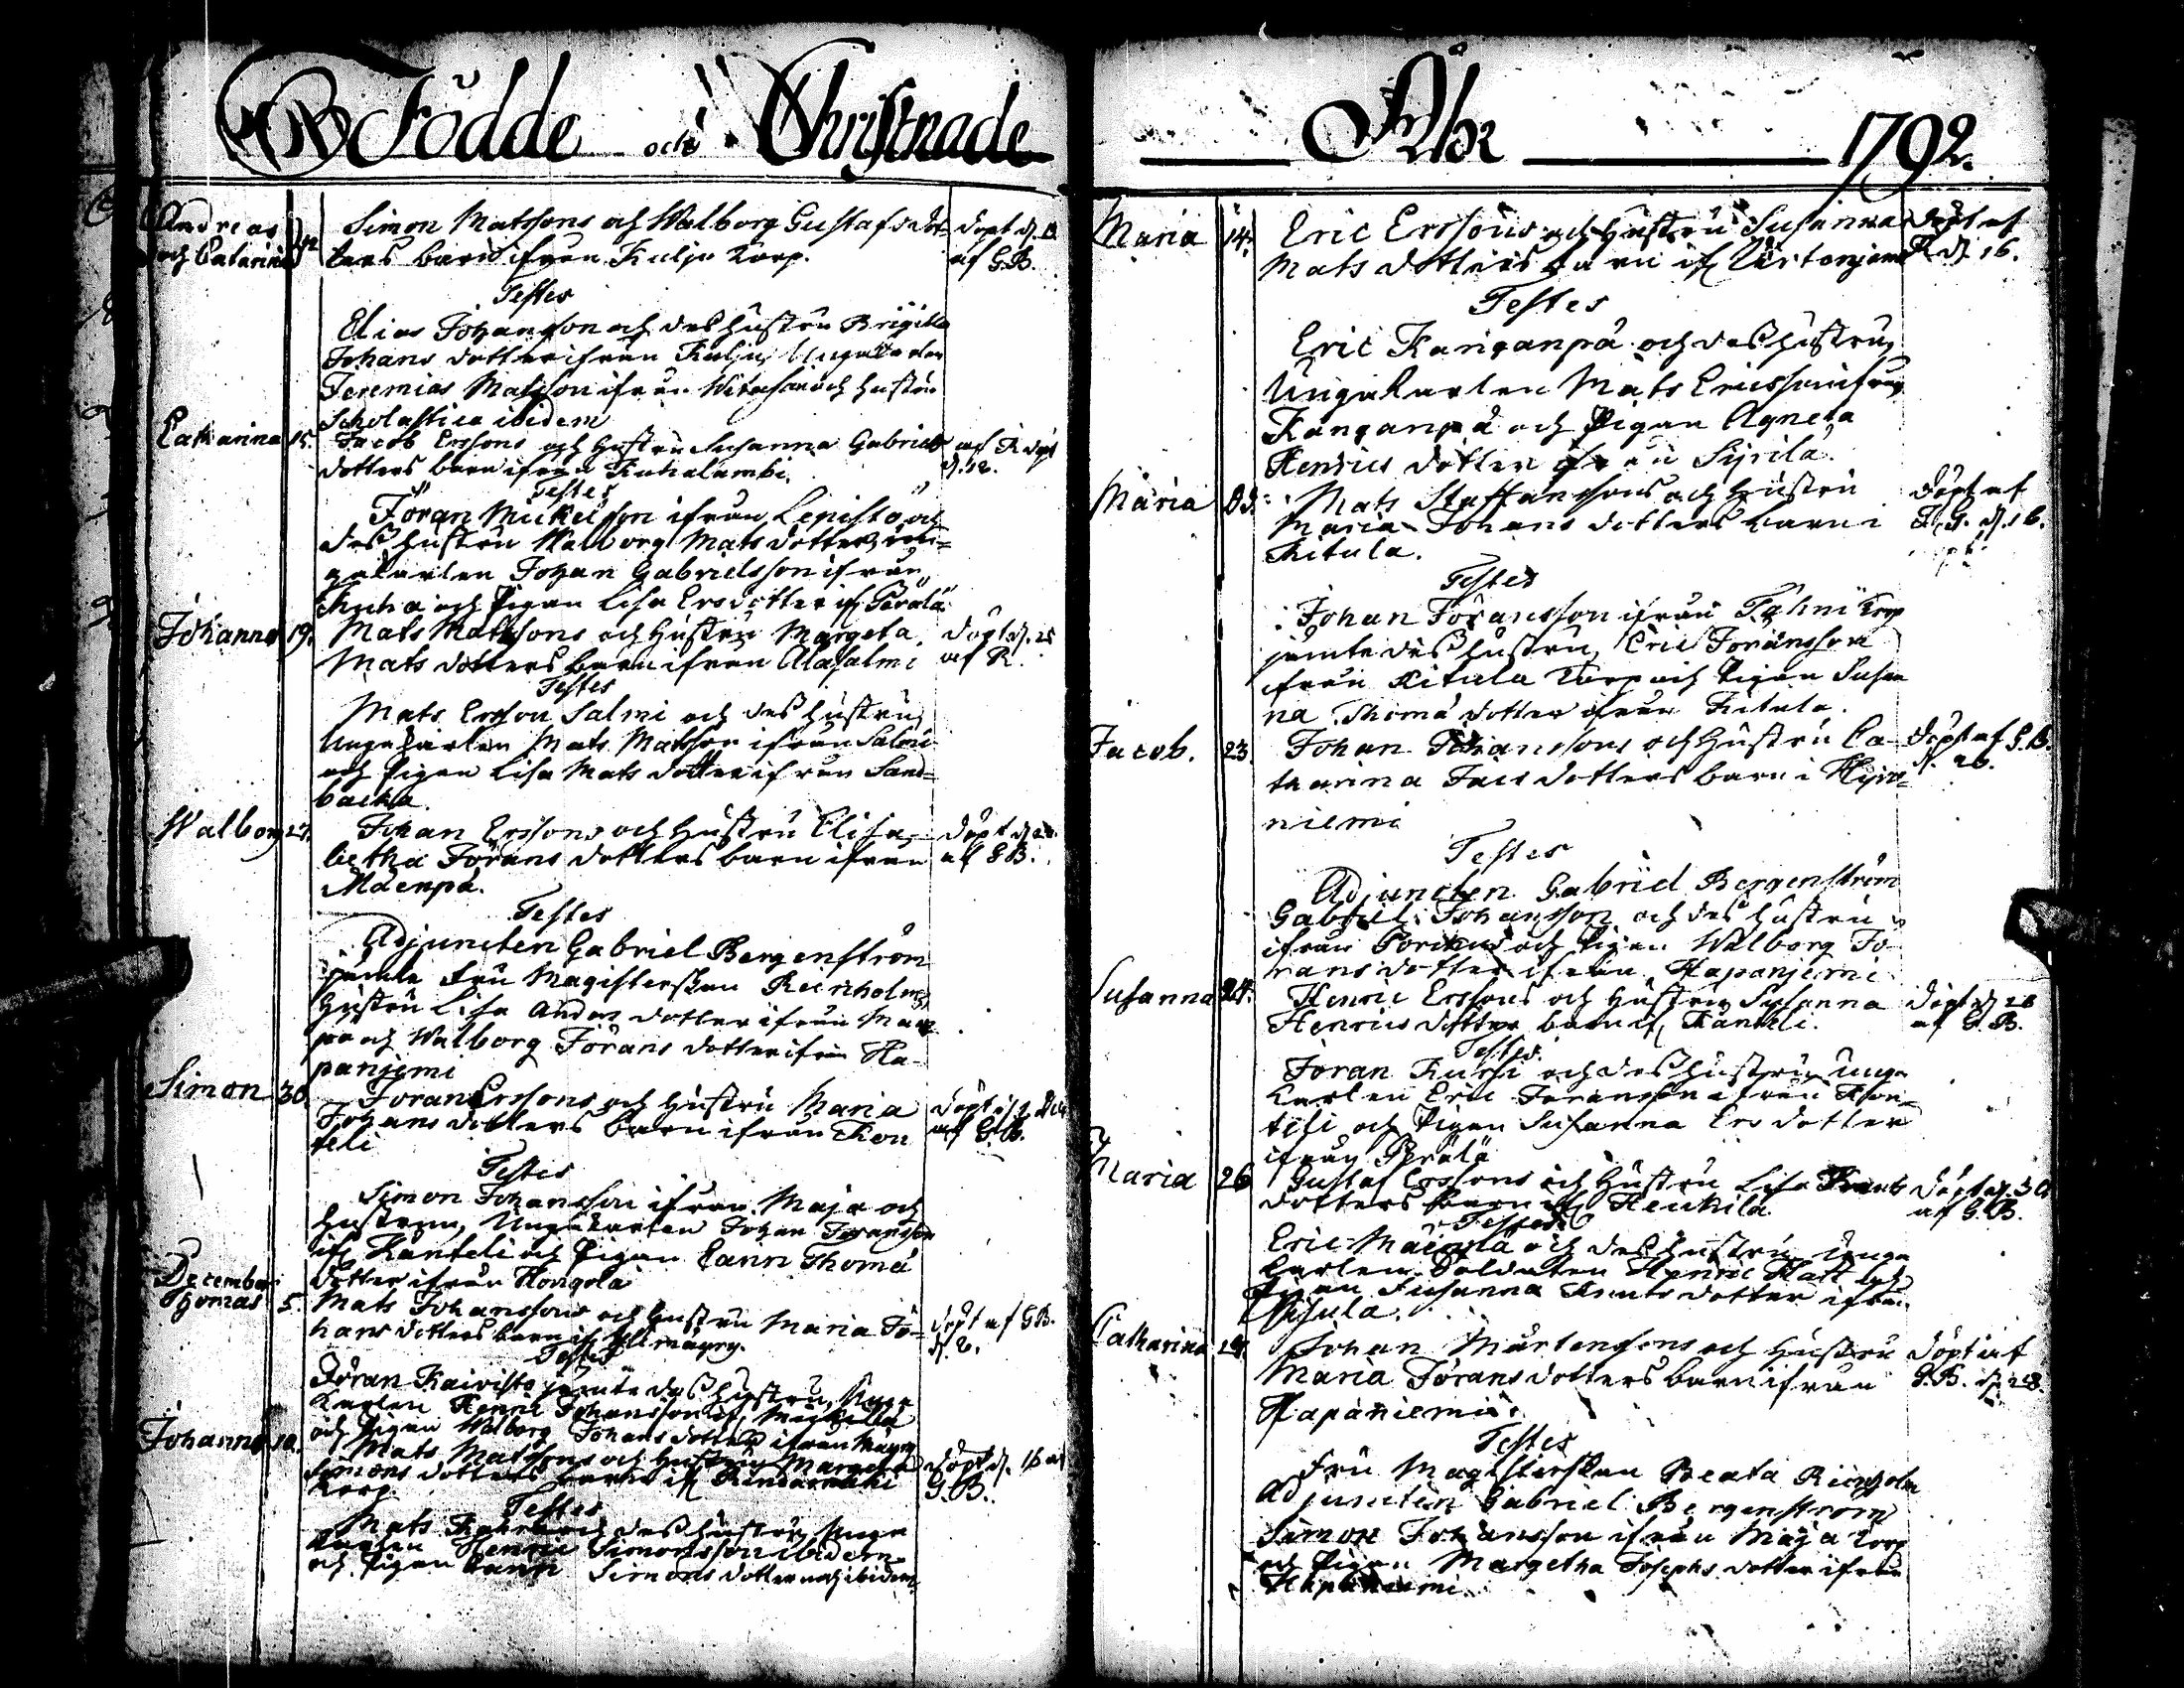 Födde och Christnade
Andreas och Catarina 12 Simon Matssons och Walborg Gustafs dot- döpt d.
ters barn ifrån Kulju Torp. af G.B.
Testes
Elias Johansson och des hustru Brigitta
Johans dotter ifrån Kulju, Ungkarlen
Jeremias Matsson ifrån och hustru
Scholastica ibidem
Catharina 15. Jacob Erssons och Hustru Susanna Gabriels af R döpt
dotters barn ifrån Kuhalambi. d. 18.
Testes
Jöran Mickelsson ifrån Lepistö och
des hustru Walborg Mats dotter, un-
gkarlen Johan Gabrielsson ifrån
och Pigan Lisa Ersdotter if. Perälä
Johannes 19. Mats Matssons och Hustru Margeta döpt d. 25
Mats dotters barn ifrån Alasalmi af R.
Testes
Mats Ersson Salmi och des hustru,
Ungkarlen Mats Matsson ifrån Salmi
och Pigan Lisa Mats dotter ifrån Sand-
backa.
Walborg 27. Johan Erssons och Hustru Elisa- döpt d.
betha Jörans dotters barn ifrån af GB.
Mäenpä.
Testes
Adjuncten Gabriel Bergenström
jämte Fru Magisterskan Reinholm
Hustru Lisa Anders dotter ifrån Mäen
pä och Walborg Jörans dotter ifrån Ha-
panjemi
Simon 30. Jöran Erssons och Hustru Maria döpt d.
Johans dotters barn ifrån Kan af G.B.
teli
Testes
Simon Johansson ifrån Maja och
Hustrun, Ungkarlen Johan Joransson
if. Kanteli och Pigan Carin Thomä
dotter ifrån Hongola
December
Thomas 5. Mats Johanssons och hustru Maria Jo- döpt af GB.
hans dotters barn if. d.
Testes
Jöran Kaivisto jämte des hustru, Unge
Karlen Henric Johansson if. Mickilä
och Pigan Walborg Johans dotter ifrån
Johannes 10. Mats Matssons och Hustru Margeta döpt d. 16 af
Simons dotters barn if. G.B.
Torp.
Testes
Mats och des hustru, Unge
Karlen Henric Simonsson ibidem
och Pigan Carin Simons dotter och ibidem.
Åhr 1792.
Maria 14. Eric Erssons och Hustru Susanna döpt af
Mats dotters barn if. R d. 16.
Testes
Eric Kanganpä och des hustru,
Ungkarlen Mats Ericsson ifrån
Kanganpä och Pigan Agneta
Henrics dotter ifrån Syrilä.
Maria Mats Staffanssons och Hustru döpt af
Maria Johans dotters barn i G. d. 16.
Kitula.
Testes
Johan Jöransson ifrån Torp
jemte des hustru, Eric Joransson
ifrån Kitula Torp och Pigan Susan
na Thomä dotter ifrån Kitula.
Jacob. 23. Johan Johanssons och Hustru Ca- döpt af G.B.
tharina Jacs dotters barn i d. 26.
niemi
Testes
Adjuncten Gabriel Bergenström
Gabriel Johansson och des hustru
ifrån och Pigan Walborg Jö-
rans dotter ifrån Hapanjemi
Susanna 24. Henric Erssons och Hustru Susanna döpt d. 26
Henrics dotters barn if. Kanteli. af G.B.
Testes
Joran Kurki och des hustru, Unge
Karlen Eric Joransson ifrån
och Pigan Susanna Ers dotter
ifrån Perälä
Maria 26 Gustaf Erssons och Hustru Lisa Knuts döpt d. 30
dotters barn if. Heickilä af G.B.
Testes
Eric och des hustru, Unge
Karlen Soldaten Henric och
Pigan Susanna Knuts dotter ifrån
Catharina 27. Johan Mårtenssons och Hustru döpt af
Maria Jörans dotters barn ifrån G.B. d. 28.
Hapaniemi.
Testes
Fru Magisterskan Beata Rienholm
Adjuncten Gabriel Bergenström
Simon Johansson ifrån Maja Torp
och Pigan Margetha Josephs dotter ifrån
Hapaniemi.